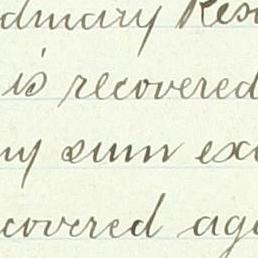 dinary Res
is recovered
ny sum exc
covered aga